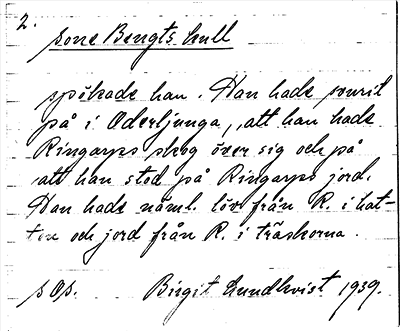 2.
sone Bengts kull
spökade han. Han hade svurit
på i Oderljunga, att han hade
Ringarps skog över sig och på
att han stod på Ringarps jord.
Han hade näml. löv från R. i hat-
ten och jord från R. i träskorna.
Birgit Lundkvist 1939.